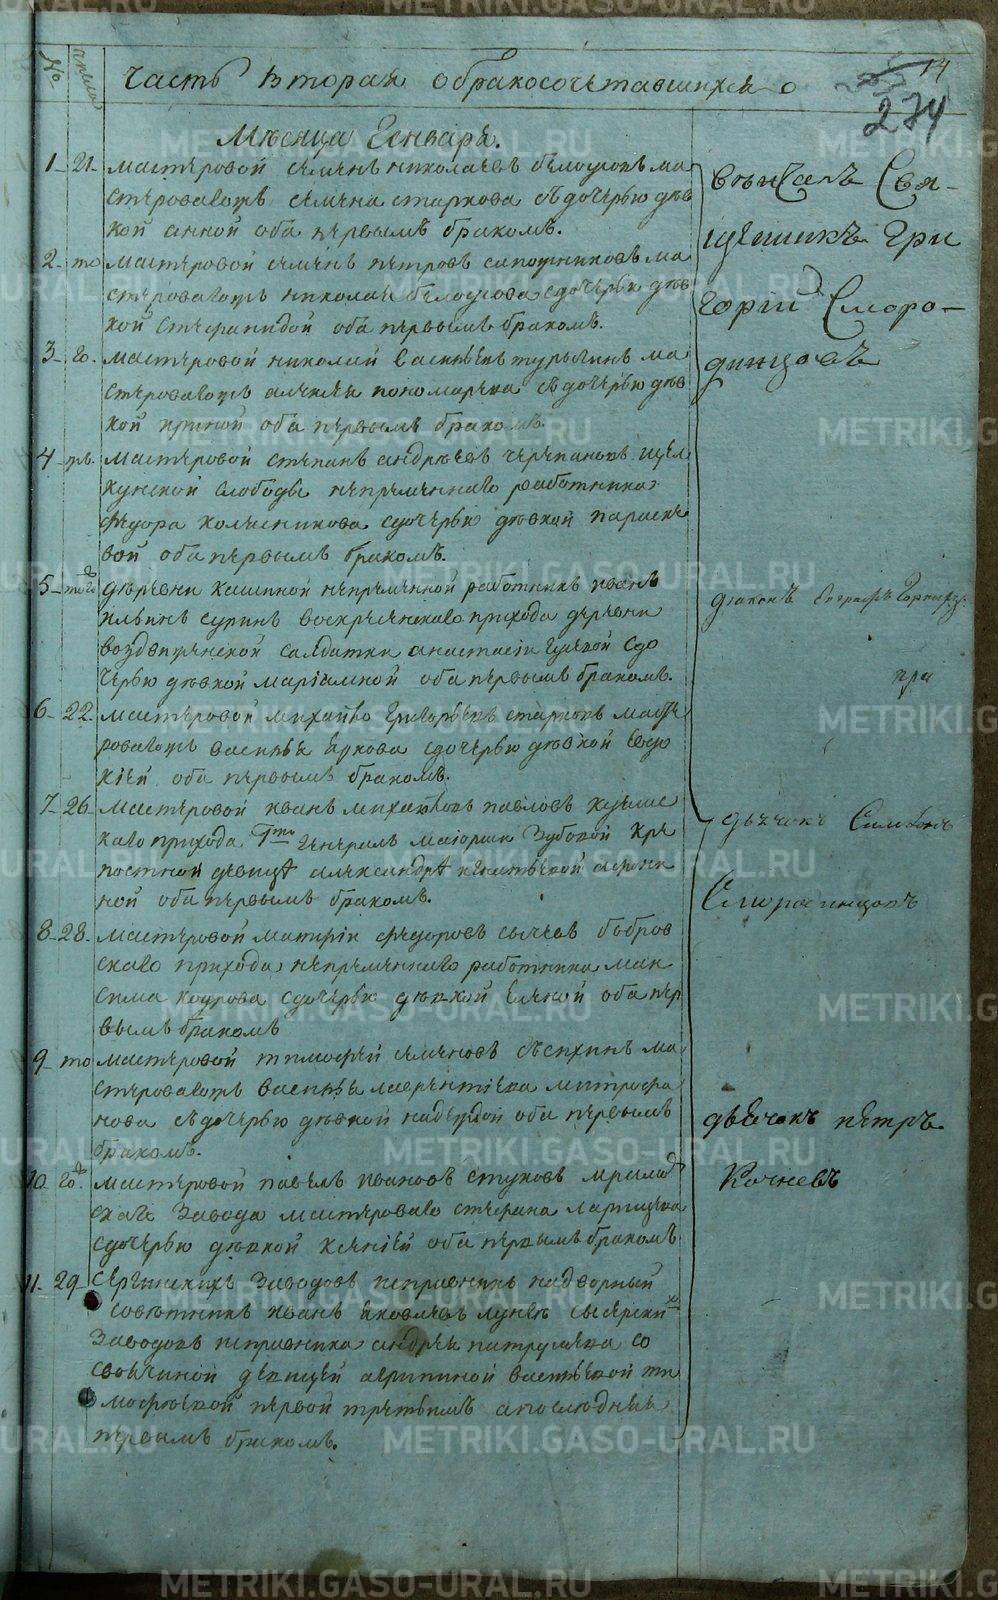 № число Часть вторая о бракосочетавшихся
14
274
Мѣсяца Генваря.
1 21. мастеровой семенъ николаевъ бѣлоусовъ ма
стероваго семена старкова съ дочерью дѣв
кой анной оба первымъ бракомъ.
2 то мастеровой семенъ петровъ сапожниковъ ма
стероваго николая бѣлоусова с дочерью дѣв
кой стефанидой оба первымъ бракомъ.
3 го. мастеровой николай васильевъ турыгинъ ма
стероваго алексея пономарева съ дочерью дѣв
кой ириной оба первымъ бракомъ.
4 мастеровой степанъ андреевъ черепановъ щел
кунской слободы непременнаго работника
федора колченикова с дочерью дѣвкой параске
вой оба первымъ бракомъ.
5 того деревни кашиной непременной работникъ иванъ
ильинъ суринъ воскресенскаго прихода деревни
воздвиженской салдатки анастасіи с до
черью дѣвкой маріамной оба первымъ бракомъ.
6 22. мастеровой михайло григорьевъ старковъ масте
роваго василья еркова с дочерью дѣвкой евдо
кіей оба первымъ бракомъ.
7 26 мастеровой иванъ михайловъ павловъ
каго прихода Гжи генералъ маіорши Зубовой кре
постной девицѣ александрѣ игнатьевой
ной оба первымъ бракомъ.
8 28. мастеровой матфій федоровъ сычевъ бобров
скаго прихода непременнаго работника мак
сима с дочерью дѣвкой еленой оба пер
вымъ бракомъ
9 то мастеровой тимофей семеновъ ма
стероваго василья лаврентіева митрофа
нова съ дочерью дѣвкой надеждой оба первымъ
бракомъ.
10 го. мастеровой павелъ ивановъ стуковъ
скаго завода мастероваго стефана
с дочерью дѣвкой ксеніей оба первымъ бракомъ
11 29 Сергинскихъ заводовъ исправникъ надворный
совѣтникъ иванъ яковлевъ сысерски
заводовъ исправника андрея патрушева со
своячиной девицей агрипиной васильевой ти
мофеевой первой третьимъ а последняя
первымъ бракомъ.
венчалъ Свя-
щенникъ Гри
горій Сморо-
динцовъ
диаконъ
при
дьячокъ Симеонъ
Смородинцовъ
дьячокъ петръ
Кочневъ
METRIKI.GASO-URAL.RU